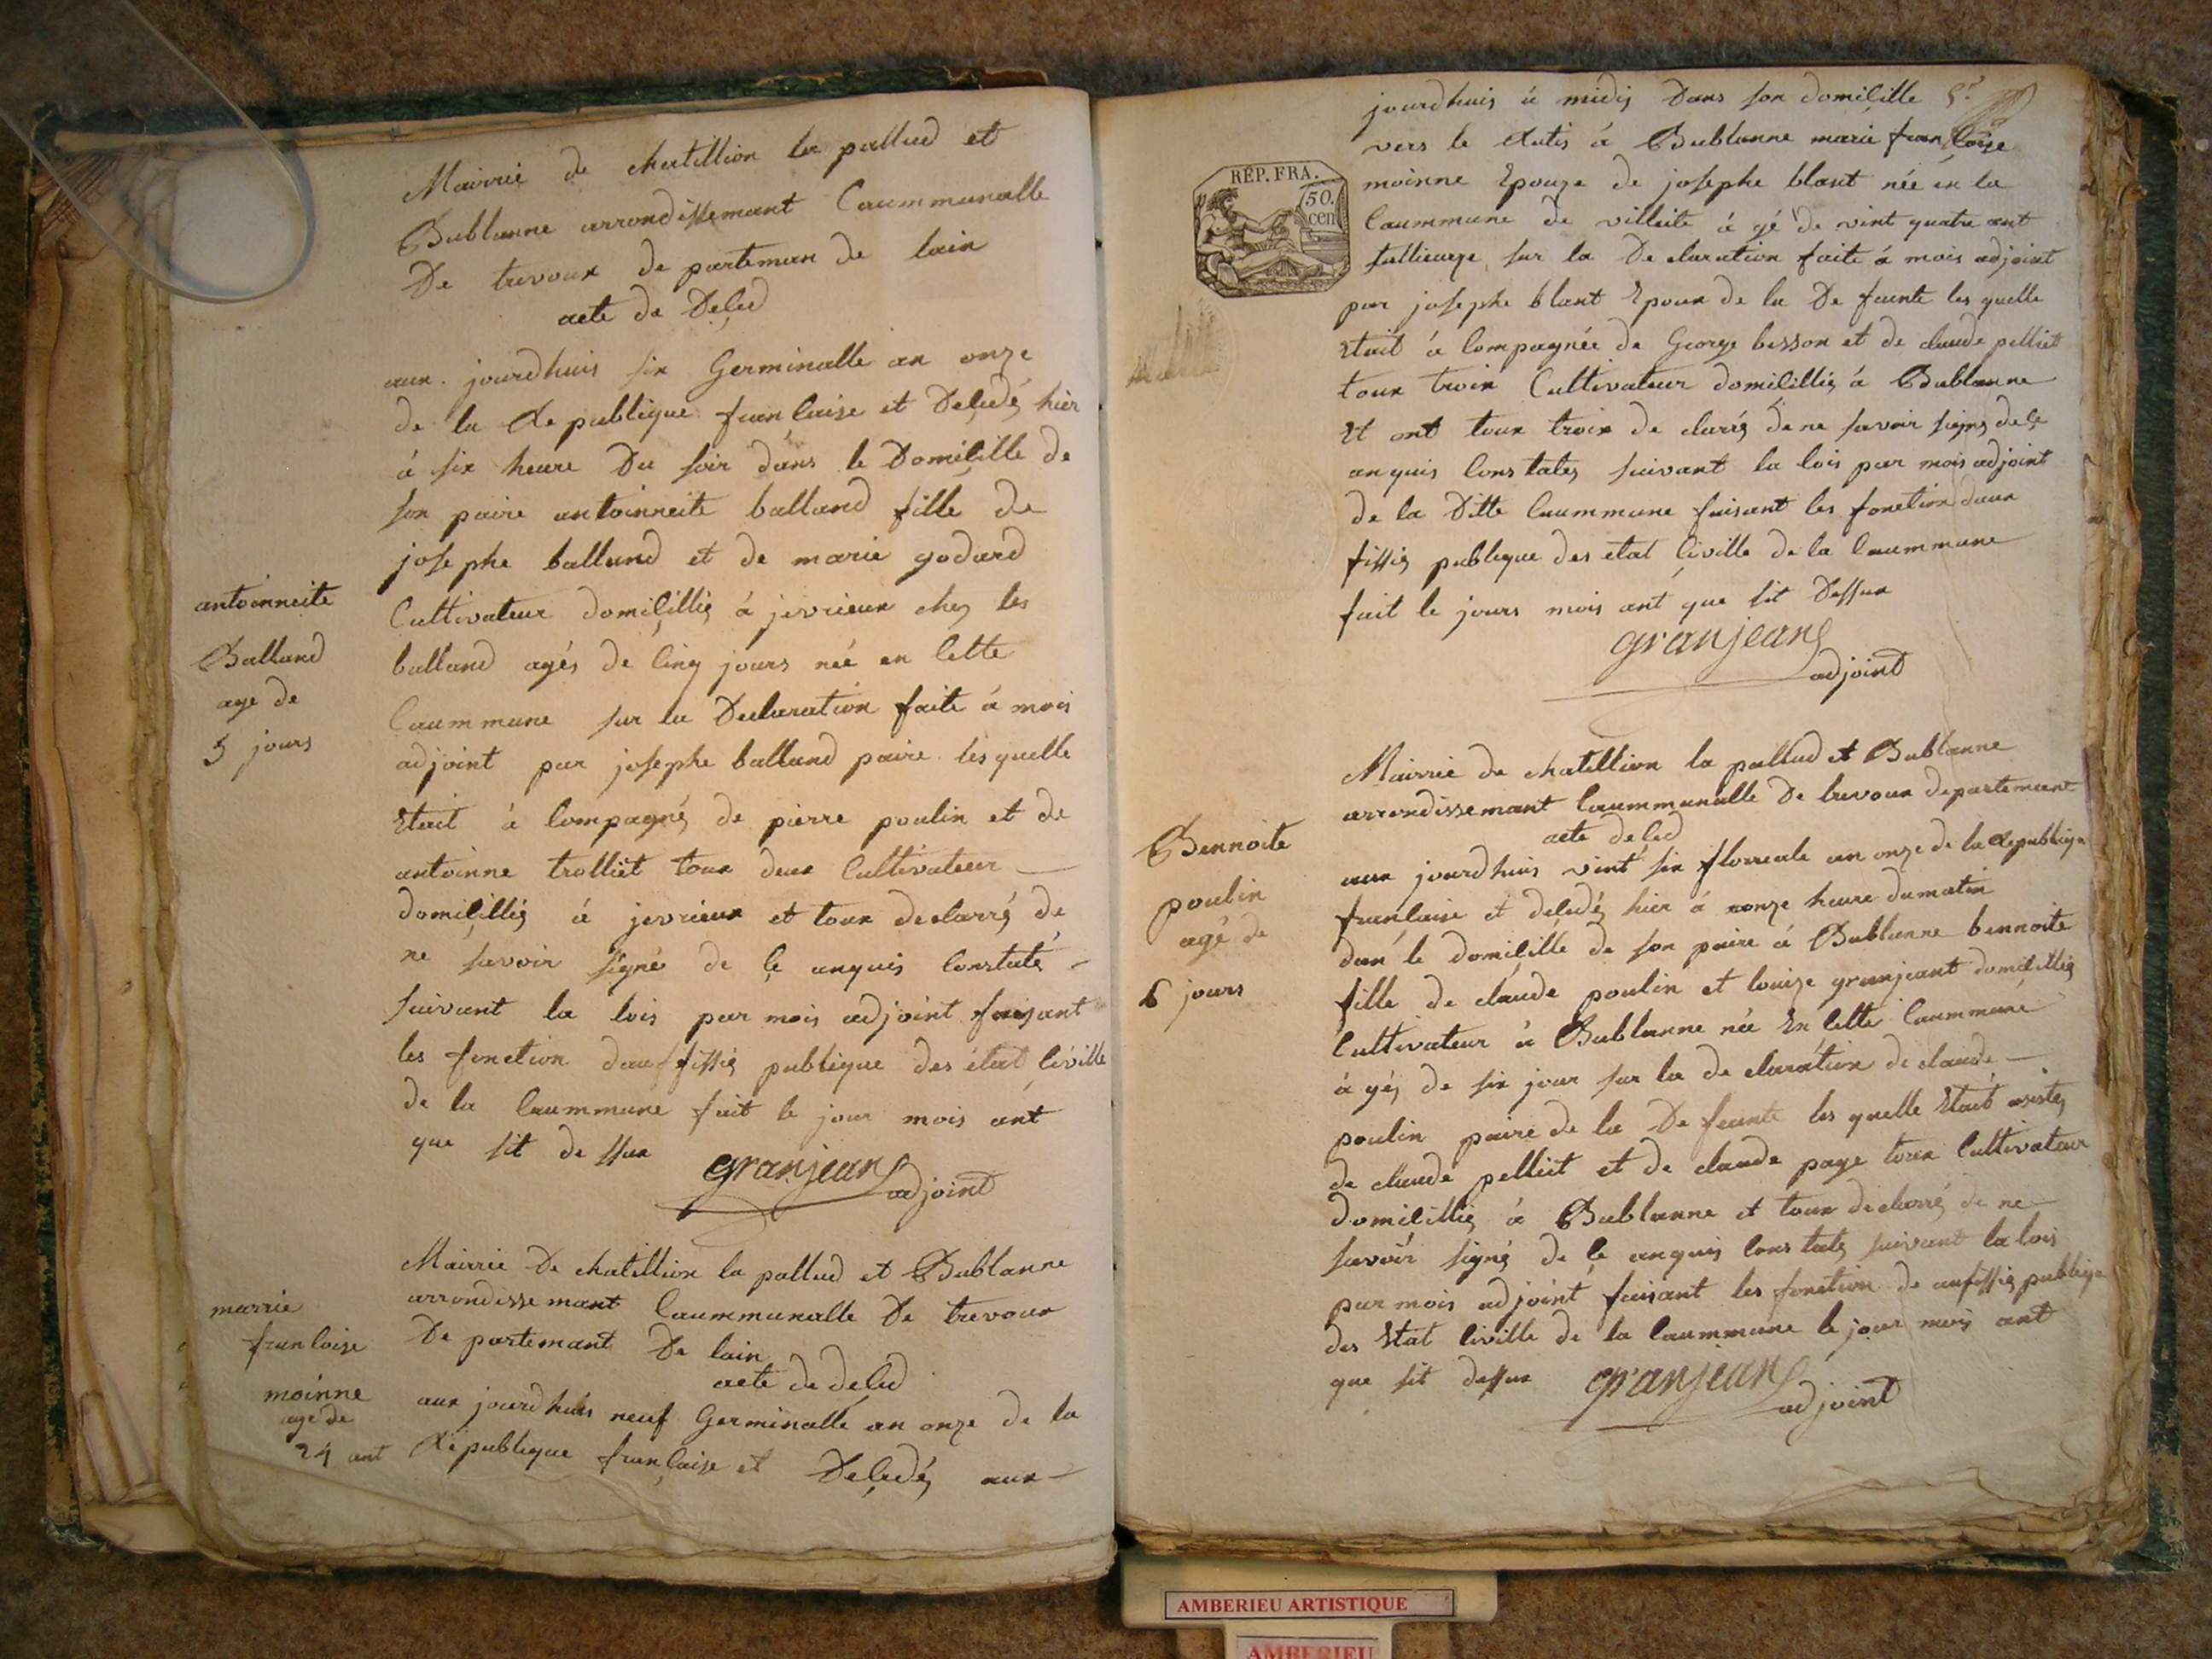 Mairrie de chatillion la pallud et
Bublanne arrondissemant Caummunalle
De trevoux de parteman de lain
acte de Deçed
aux jourdhuis six Germinalle an onze
de la Republique française et Deçedéz hier
á six heure Du soir dans le Domiçille de
son paire antoinneite balland fille de
josephe balland et de marie godard
Cultivateur domiçilliéz á jevrieux chez les
balland agés de cinq jours néé en cette
Caummune sur la Declaration faite á mois
adjoint par josephe balland paire lesquelle
Etait á compagnéz de pierre poulin et de
antoinne trolliet toux deux Cultivateur
domiçilliéz á jevrieux et toux declarréz de
ne savoir signé de çe anquis constaté
suivant la lois par mois adjoint faisant
les fonction dauffissiéz publique des état çiville
de la Caummune fait le jour mois ant
que sit dessux
granjean
adjoint
antoinneite
Balland
age de
5 jours
Mairrie De chatillion la pallud et Bublanne
arrondissemant Caummunalle De trevoux
De partemant De lain
acte de deçed
aux jourdhuis neuf Germinalle an onze de la
Republique française et Deçedéz aux
marrie
francoise
moinne
age de
24 ant
jourdhuis á midis Dans son domicille
vers le Rutis á Bublanne marie françoize
moinne Epouze de josephe blant néé en la
Caummune de villeite á gé de vint quatre ant
sur la De claration faite á mois adjoint
par josephe blant Epoux de la De feunte les quelle
Etait á compagnée de George besson et de claude pelliet
toux troix Cultivateur domicilliéz á Bublanne
Et ont toux troix de claréz de ne savoir signéz de çe
anquis constatéz suivant la lois par mois adjoint
de la Ditte Caummune faisant les fonction daux
fissiéz publique des etat çiville de la Caummune
fait le jours mois ant que sit Dessux
granjean
adjoint
RÉP. FRA.
50.
cen
Mairrie de chatillion la pallud et Bublanne
arrondissemant Caummunalle De trevoux departemant
acte deçed
aux jourdhuis vint six florreale an onze de la Republique
française et deçedéz hier á onze heure dumatin
dan le domiçille de son paire á Bublanne bennoite
fille de claude poulin et louize granjeant domicilliéz
Cultivateur á Bublanne néé En cette Caummune
á géz de six jour sur la de claration de claude
poulin paire de la De feunte les quelle Etait asistéz
de claude pelliet et de claude page toux Cultivateur
domicilliéz á Bublanne et toux declarréz de ne
savoir signéz de çe anquis constatéz suivant la lois
par mois adjoint faisant les fonction de aufissiéz publique
des Etat civille de la Caummune le jour mois ant
que sit dessux
granjean
adjoint
Bennoite
poulin
agé de
6 jours
AMBERIEU ARTISTIQUE
AMBERIEU